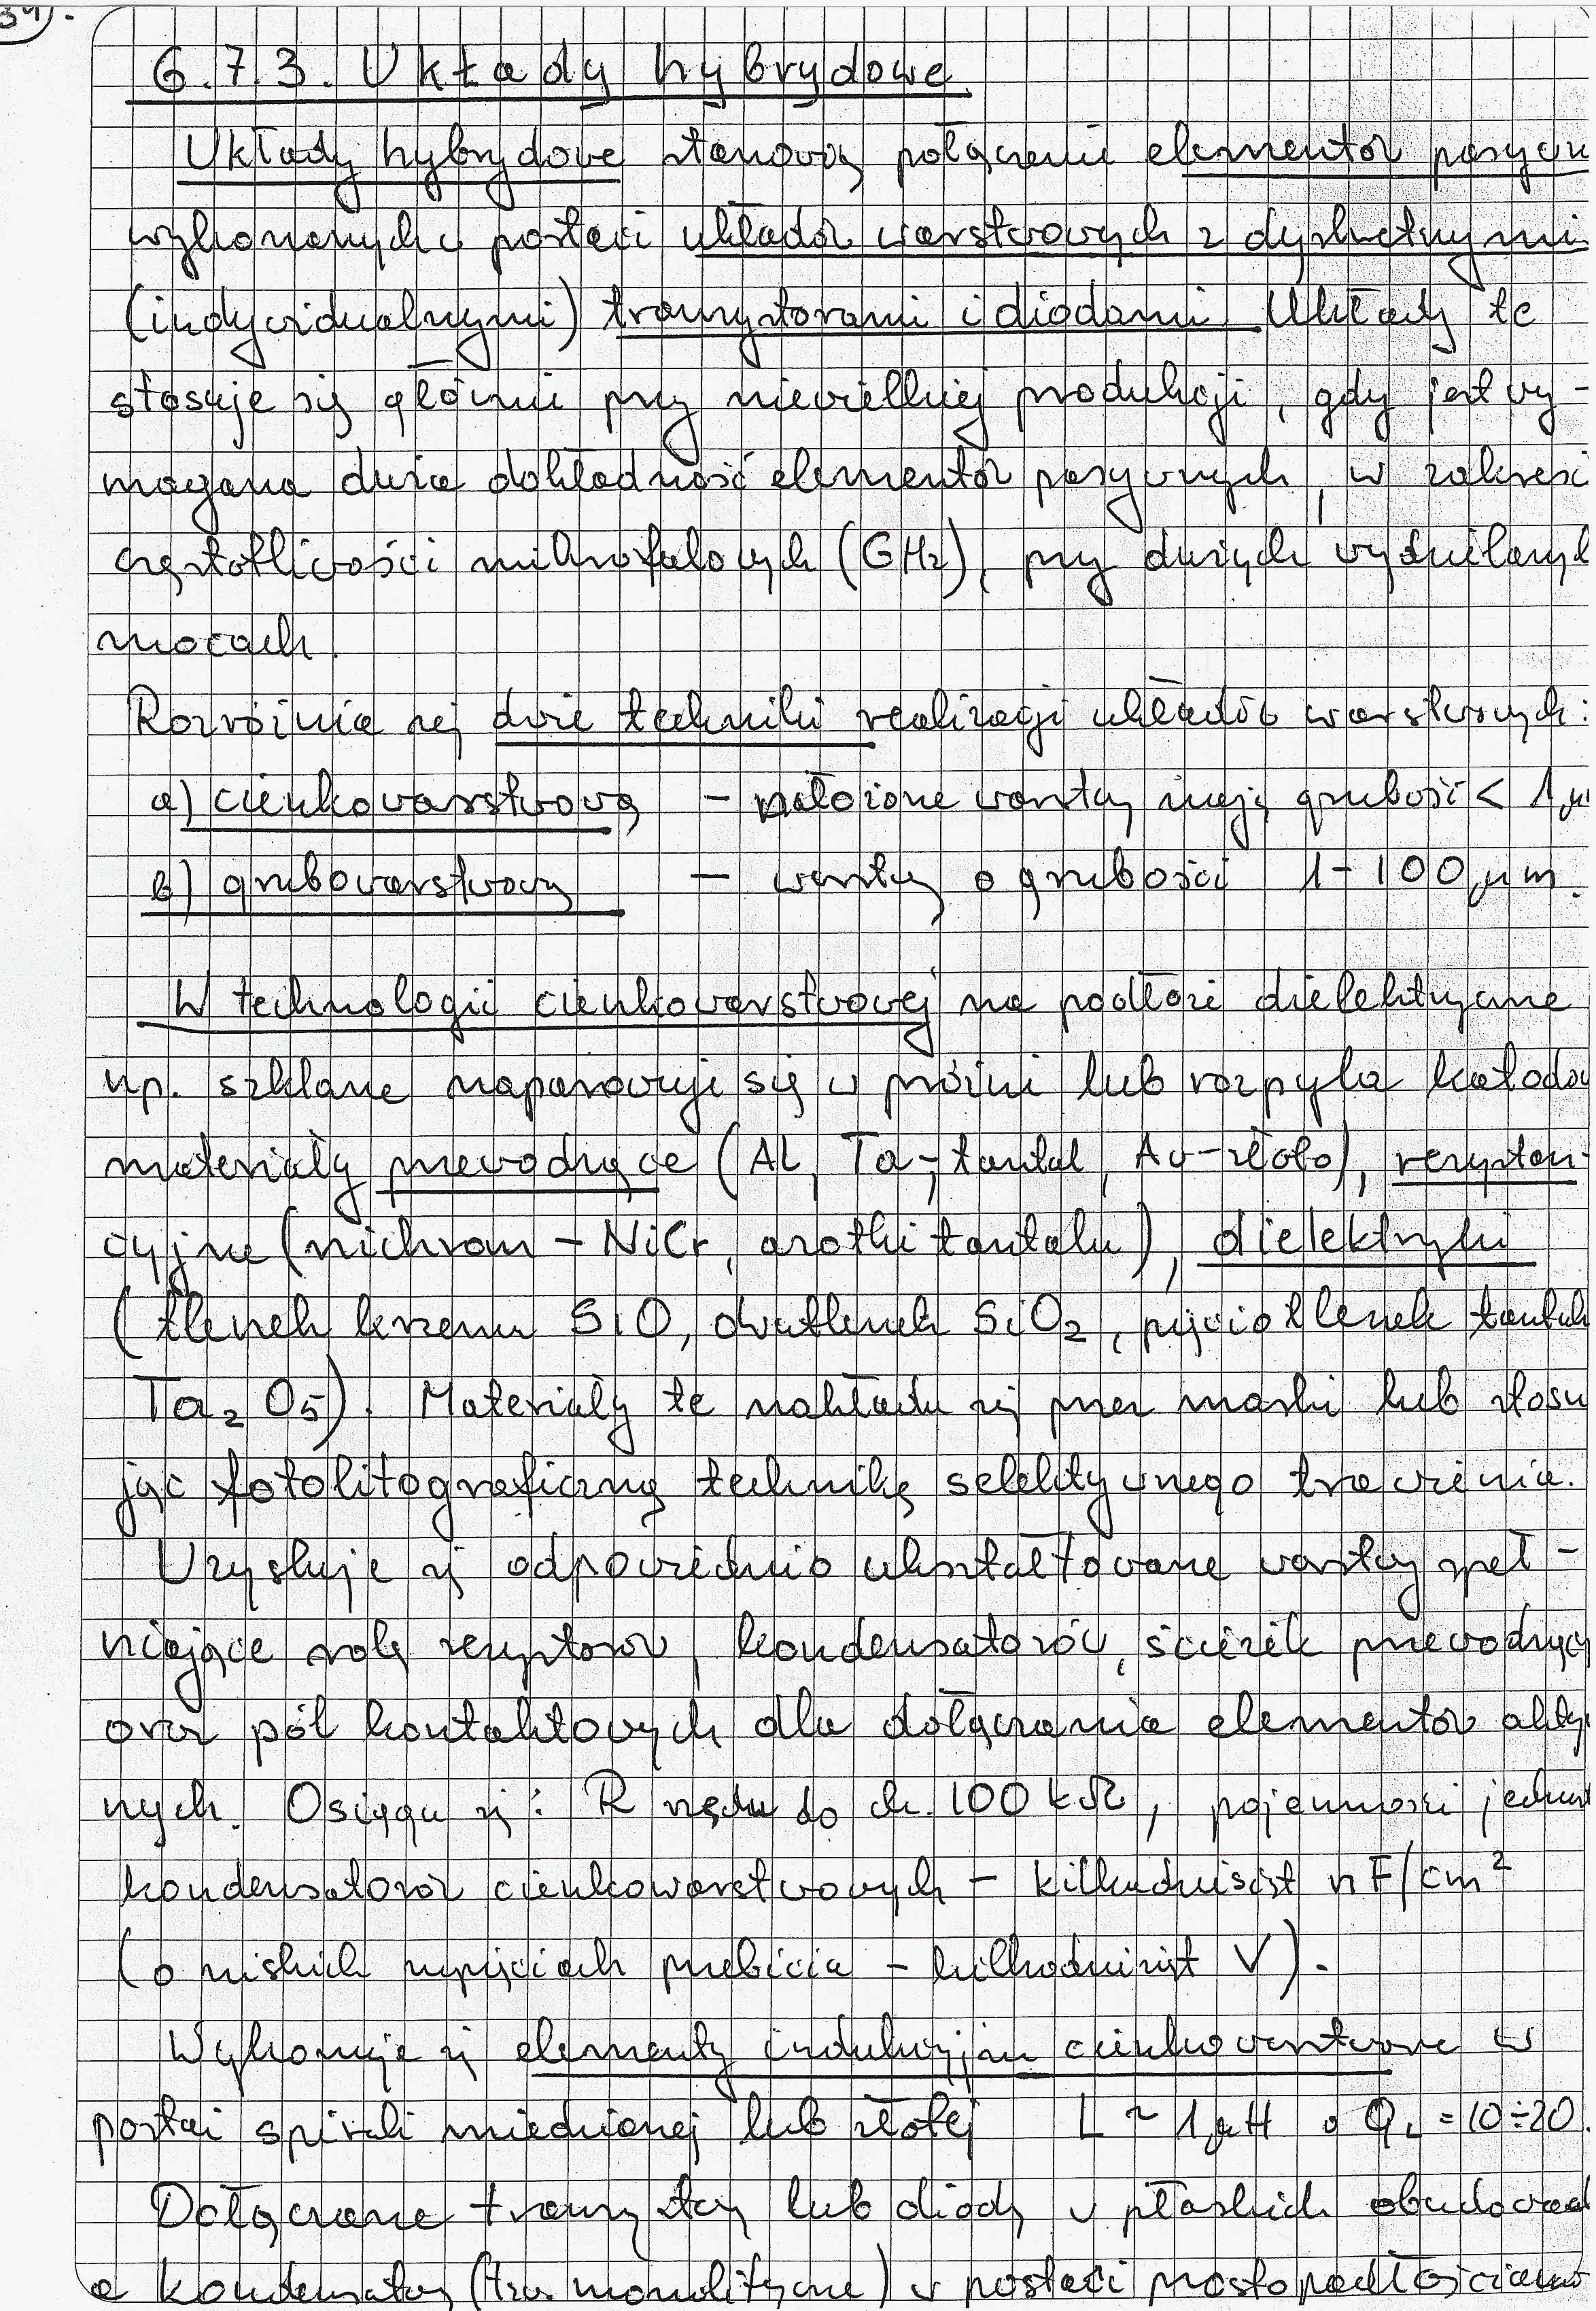 34).
6.7.3. Układy hybrydowe.
Układy hybrydowe stanowią połączenie elementów pasywn
wykonanych w postaci układów warstwowych z dyskretnymi
(indywidualnymi) tranzystorami i diodami. Układy te
stosuje się głównie przy niewielkiej produkcji, gdy jest wy-
magana duża dokładność elementów pasywnych, w zakresie
częstotliwości mikrofalowych (GHz), przy dużych wydzielanych
mocach.
Rozróżnia się dwie techniki realizacji układów warstwowych:
a) cienkowarstwową – nałożone warstwy mają grubość < 1 μ
b) grubowarstwową – warstwy o grubości 1-100 μm.
W technologii cienkowarstwowej na podłoże dielektryczne
np. szklane naparowuje się w próżni lub rozpyla katodow
materiały przewodzące (Al, Ta-tantal, Au-złoto), rezystan-
cyjne (nichrom – NiCr, azotki tantalu), dielektryki
(tlenek krzemu SiO, dwutlenek SiO₂, pięciotlenek tantalu
Ta₂O₅). Materiały te nakłada się przez maski lub stosu
jąc fotolitograficzną technikę selektywnego trawienia.
Uzyskuje się odpowiednio ukształtowane warstwy speł-
niające rolę rezystorów, kondensatorów, ścieżek przewodzący
oraz pól kontaktowych dla dołączania elementów akty
nych. Osiąga się: R rzędu do ok. 100 kΩ, pojemności jednost
kondensatorów cienkowarstwowych – kilkadziesiąt nF/cm²
(o niskich napięciach przebicia – kilkadziesiąt V).
Wykonuje się elementy indukcyjne cienkowarstwowe w
postaci spirali miedzianej lub złotej L ~ 1 μH o Q_L = 10÷20.
Dołączane tranzystory lub diody w płaskich obudowach
a kondensatory (tzw. monolityczne) w postaci prostopadłościanów